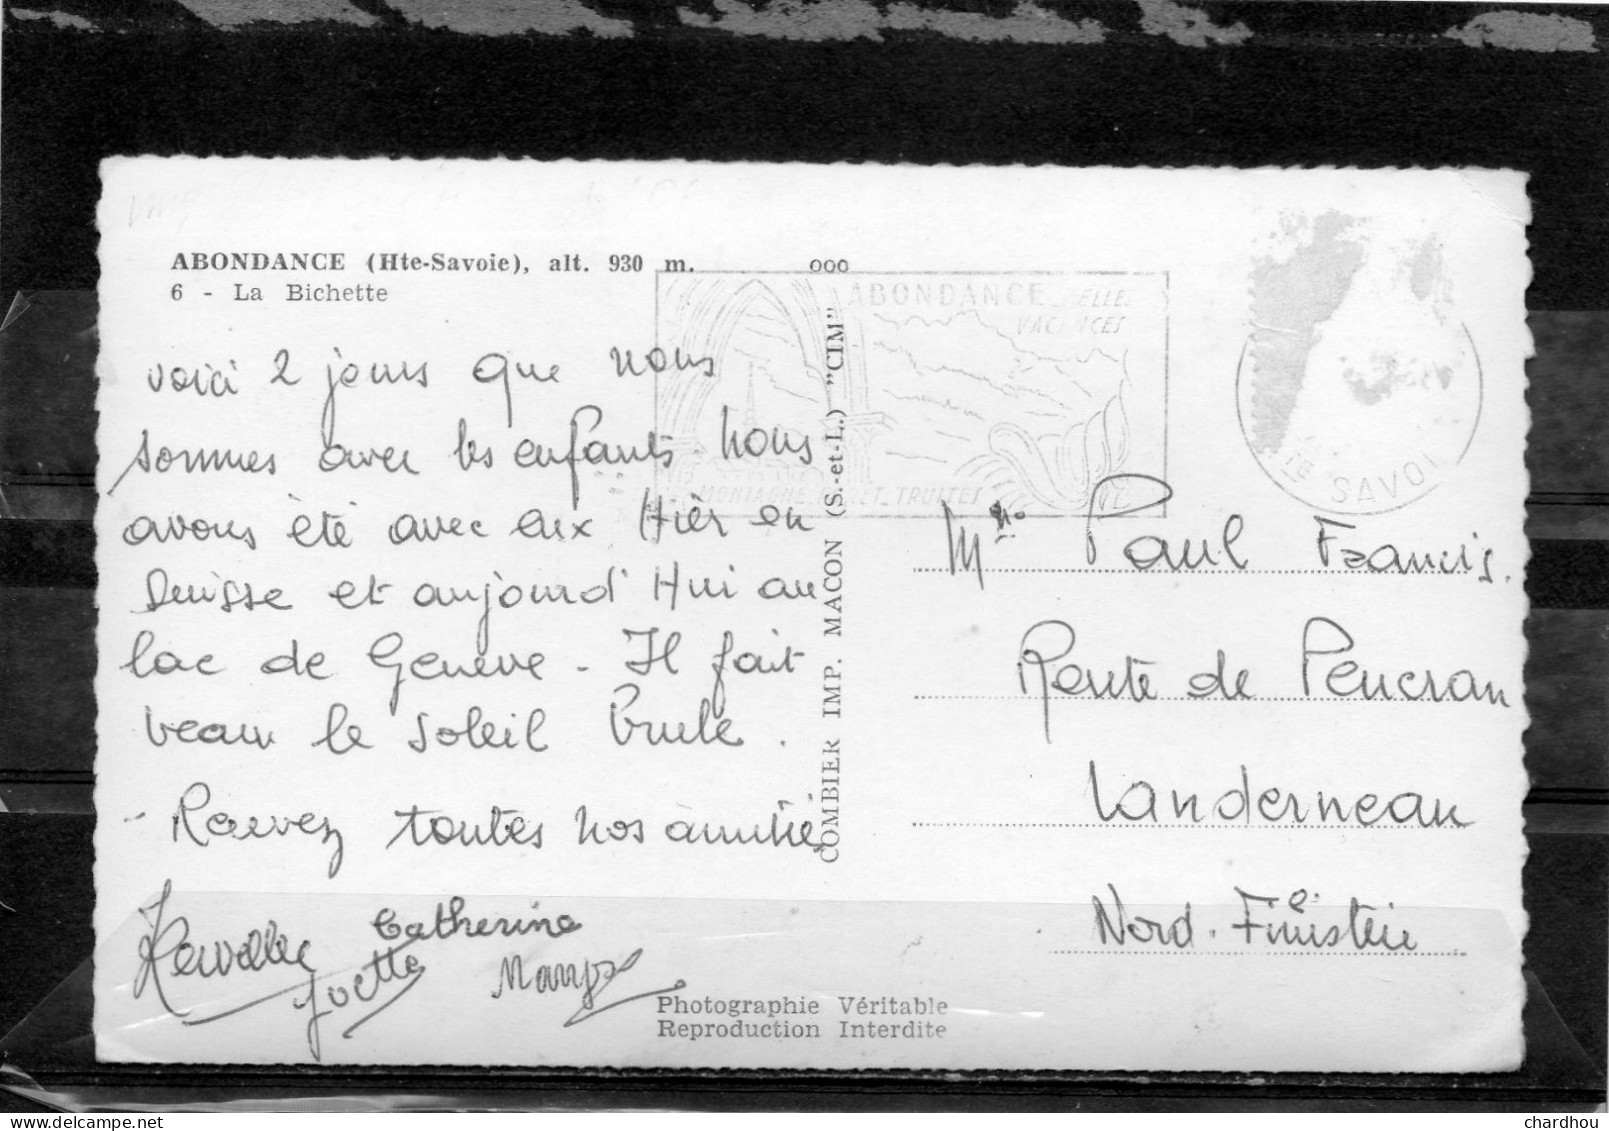 ABONDANCE (Hte-Savoie), alt. 930 m.
6 - La Bichette
ooo
ABONDANCE
VACANCES
MONTAGNE TRUITES
Hte SAVOIE
voici 2 jours que nous
sommes avec les enfants nous
avons été avec eux Hièr en
Suisse et aujourd'Hui au
lac de Genève - Il fait
beau le soleil brule.
- Recevez toutes nos amitié
Catherine
Yvette
COMBIER IMP. MACON (S.-et-L.) "CIM"
Mme Paul Francis.
Route de Pencran
Landerneau
Nord. Finistère
Photographie Véritable
Reproduction Interdite
chardhou